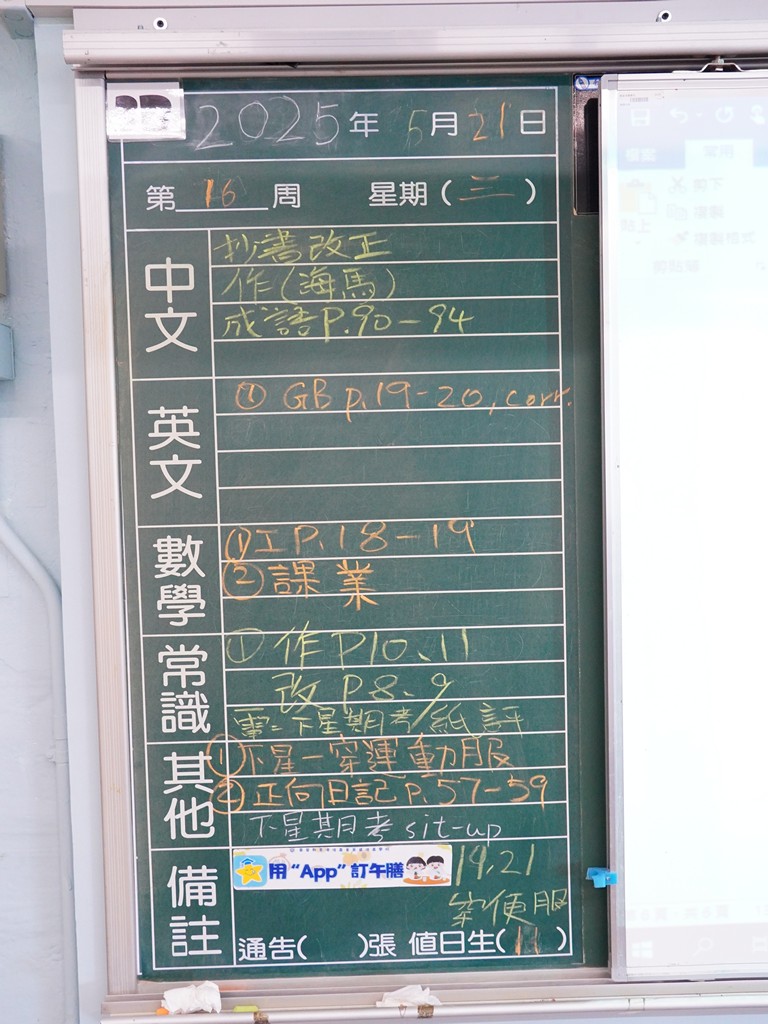 2025年 5月21日
第16周 星期(三)
中文
抄書改正
作(海馬)
成語P.90-94
英文
① GB p.19-20, corr.
數學
①工P.18-19
②課業
常識
①作P10、11
改P8、9
電:下星期考紙評
其他
①下星一穿運動服
②正向日記p.57-59
下星期考sit-up
備註
用“App”訂午膳
19,21
穿便服
通告( )張 值日生(11)